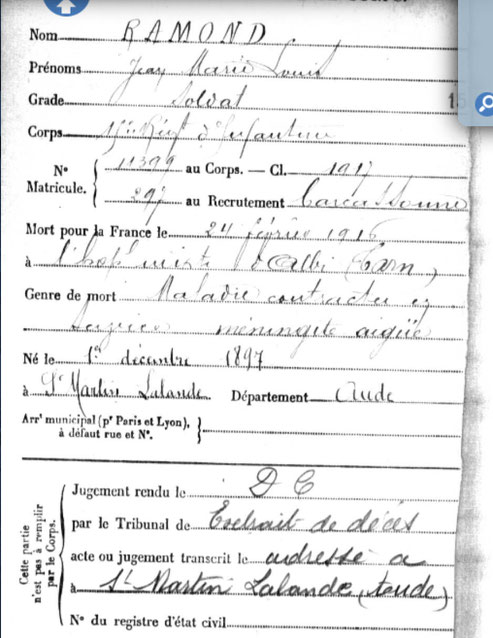 Nom RAMOND
Prénoms Jean Marie Louis
Grade Soldat
15
Corps 15e Régt d'Infanterie
No Matricule. 11399 au Corps. — Cl. 1917
297 au Recrutement Carcassonne
Mort pour la France le 24 février 1916
à l'hopl mixte d'Albi (Tarn)
Genre de mort Maladie contractée en
service méningite aigüe
Né le 1er décembre 1897
à St Martin Lalande Département Aude
Arrt municipal (pr Paris et Lyon),
à défaut rue et No.
Cette partie
n'est pas à remplir
par le Corps.
Jugement rendu le D C
par le Tribunal de Extrait de décès
acte ou jugement transcrit le adressé a
à St Martin Lalande (Aude)
No du registre d'état civil